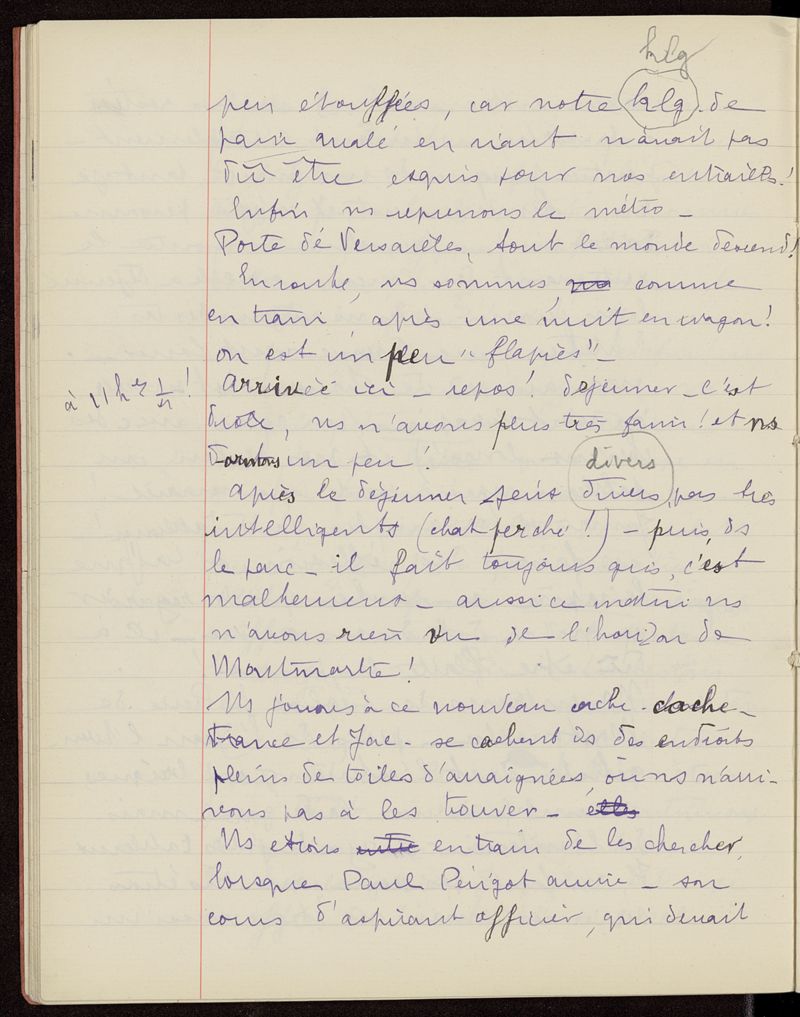 klg
peu étouffées, car notre klg. de
pain avalé en riant n'avait pas
dû être exquis pour nos entrailles!
Enfin ns reprenons le métro -
Porte de Versailles, tout le monde descend!
En route, ns sommes ns comme
en train, après une nuit en wagon!
on est un peu "flapies" -
à 11 h et 1/2!
Arrivée ici - repos! déjeuner - c'est
drôle, ns n'avons plus très faim! et ns
dormons un peu!
divers
après le déjeuner jeux divers, pas très
intelligents (chat perché!) - puis, ds
le parc - il fait toujours gris, c'est
malheureux - aussi ce matin ns
n'avons rien vu de l'horizon de
Montmartre!
Ns jouons à ce nouveau cache-cache -
France et Jac. se cachent ds des endroits
pleins de toiles d'araignées, où ns n'arri-
vons pas à les trouver - elles
Ns étions entre en train de les chercher,
lorsque Paul Périgot arrive - son
cours d'aspirant officier, qui devait